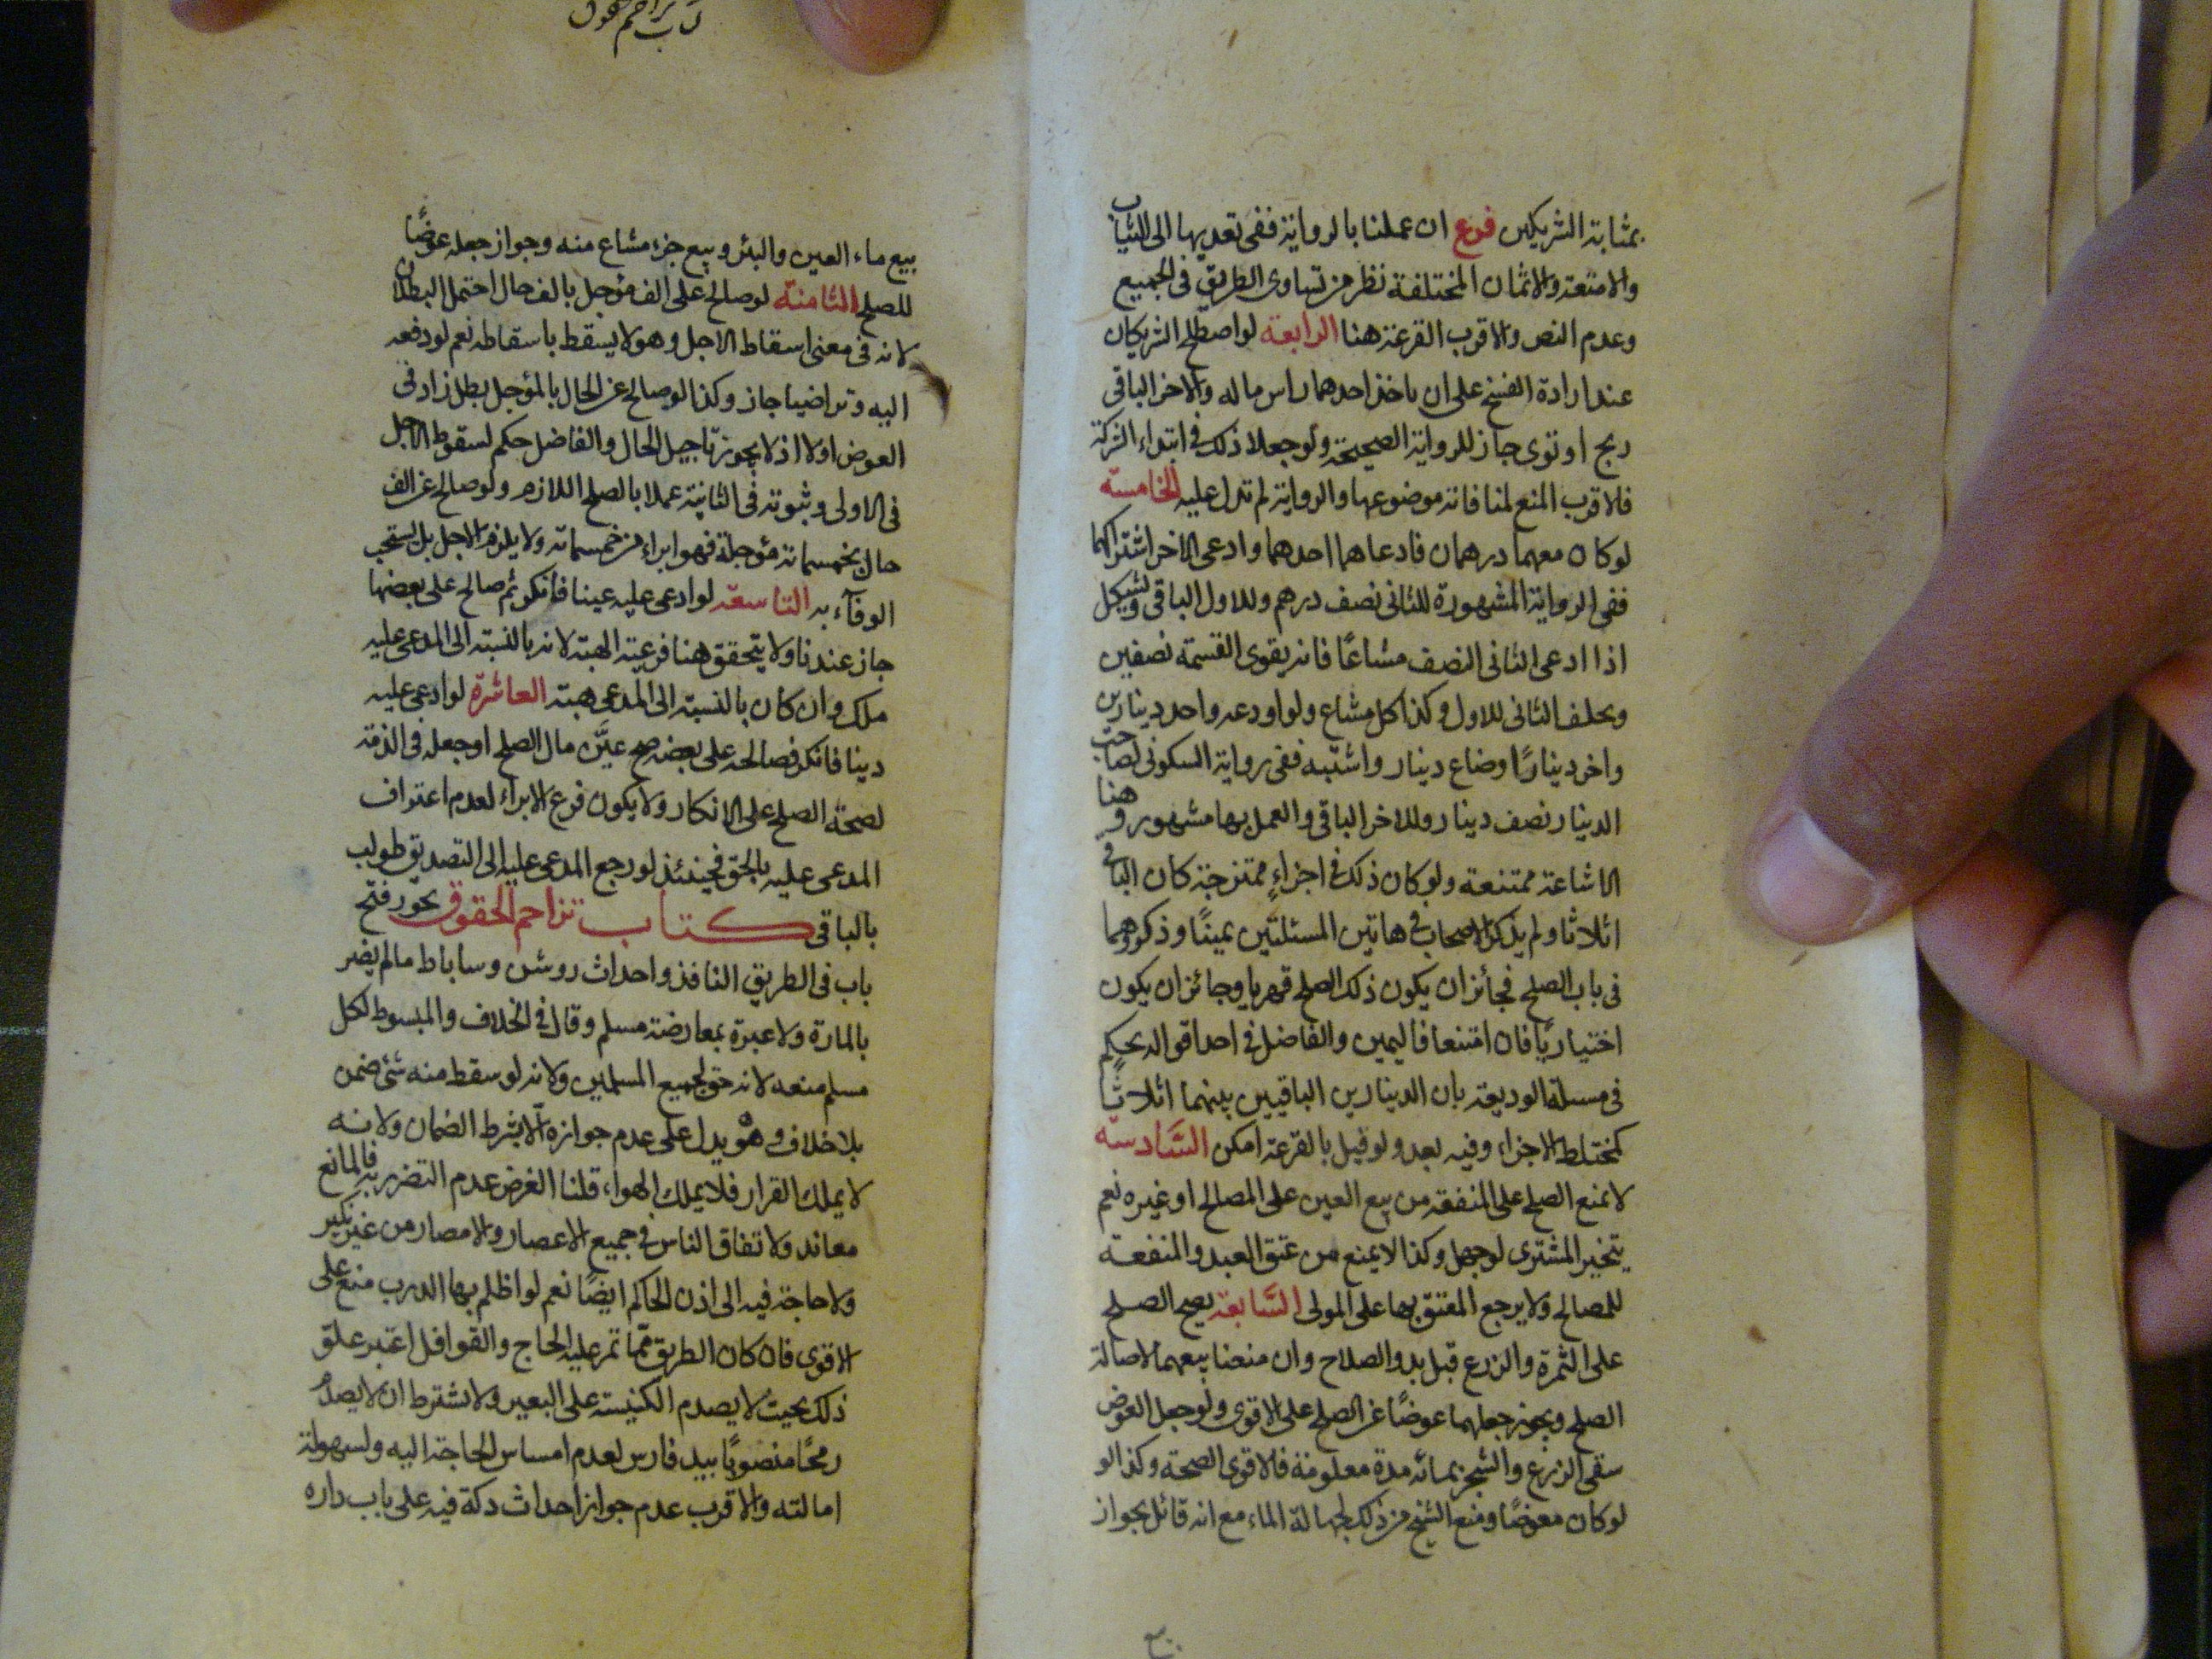 بمثابة الشريكين فرع ان عملنا بالرواية ففى تعديها الى الثياب
والامتعة والاثمان المختلفة نظر من تساوى الطريق فى الجميع
وعدم النص والاقرب القرعة هنا الرابعة لو اصطلح الشريكان
عند ارادة الفسخ على ان ياخذ احدهما راس ماله والاخر الباقى
ربح او توى جاز للرواية الصحيحة ولو جعلا ذلك فى ابتداء الشركة
فالاقرب المنع لمنافاته موضوعها والرواية لم تدل عليه الخامسة
لو كان معهما درهمان فادعاهما احدهما وادعى الاخر اشتراكهما
ففى الرواية المشهورة للثانى نصف درهم وللاول الباقى ويشكل
اذا ادعى الثانى النصف مشاعًا فانه يقوى القسمة نصفين
ويحلف الثانى للاول وكذا كل مشاع ولو اودعه واحد دينارين
واخر دينارًا وضاع دينار واشتبه ففى رواية السكونى لصاحب
الدينار نصف دينار وللاخر الباقى والعمل بها مشهور وهنا
الاشاعة ممتنعة ولو كان ذلك فى اجزاءٍ ممتزجة كان الباقى
اثلاثا ولم يذكر الاصحاب فى هاتين المسئلتين يمينًا وذكروهما
فى باب الصلح فجائز ان يكون ذلك الصلح قهريا وجائز ان يكون
اختياريًا فان امتنعا فاليمين والفاضل فى احد اقواله يحكم
فى مسئلة الوديعة بان الدينارين الباقيين بينهما اثلاثًا
كمختلط الاجزاء وفيه بعد ولو قيل بالقرعة امكن السَّادسة
لا يمنع الصلح على المنفعة من بيع العين على المصالح او غيره نعم
يتخير المشترى لو جهل وكذا لا يمنع من عتق العبد والمنفعة
للمصالح ولا يرجع المعتق بها على المولى السَّابعة يصح الصلح
على الثمرة والزرع قبل بدو الصلاح وان منعنا بيعهما لاصالة
الصلح ويجوز جعلهما عوضًا عن الصلح على الاقوى ولو جعل العوض
سقى الزرع والشجر بمائه مدة معلومة فالاقوى الصحة وكذا لو
لو كان معوضًا ومنع الشيخ من ذلك لجهالة الماء مع انه قائل بجواز
بيع
كتاب تزاحم الحقوق
بيع ماء العين والبئر وبيع جزء مشاع منه وجواز جعله عوضًا
للصلح الثامنة لو صالح على الف مؤجل بالف حال احتمل البطلان
لانه فى معنى اسقاط الاجل وهو لا يسقط باسقاطه نعم لو دفعه
اليه وتراضيا جاز وكذا لو صالح عن الحال بالمؤجل بطل زاد فى
العوض او لا اذ لا يجوز تاجيل الحال والفاضل حكم لسقوط الاجل
فى الاولى وثبوته فى الثانية عملا بالصلح اللازم ولو صالح عن الف
حال بخمسمائة مؤجلة فهو ابراء من خمسمائة ولا يلزم الاجل بل يستحب
الوفآء به التاسعة لو ادعى عليه عينا فانكر ثم صالح على بعضها
جاز عندنا ولا يتحقق هنا فرعية الهبة لانه بالنسبة الى المدعى عليه
ملك وان كان بالنسبة الى المدعى هبة العاشرة لو ادعى عليه
دينا فانكر فصالحه على بعضه صح عيَّن مال الصلح او جعله فى الذمة
لصحة الصلح على الانكار ولا يكون فرع الابراء لعدم اعتراف
المدعى عليه بالحق فحينئذ لو رجع المدعى عليه الى التصديق طولب
بالباقى كتاب تزاحم الحقوق يجوز فتح
باب فى الطريق النافذ واحداث روشن وساباط ما لم يضر
بالمارة ولا عبرة بمعارضة مسلم وقال فى الخلاف والمبسوط لكل
مسلم منعه لانه حق لجميع المسلمين ولانه لو سقط منه شئ ضمن
بلا خلاف وهو يدل على عدم جوازه الا بشرط الضمان ولانه
لا يملك القرار فلا يملك الهواء قلنا الغرض عدم التضرر به فالمانع
معاند ولاتفاق الناس فى جميع الاعصار والامصار من غير نكير
ولا حاجة فيه الى اذن الحاكم ايضًا نعم لو اظلم بها الدرب منع على
الاقوى فان كان الطريق ممّا تمر عليه الحاج والقوافل اعتبر علوّ
ذلك بحيث لا يصدم الكنيسة على البعير ولا نشترط ان لا يصدم
رمحًا منصوبًا بيد فارس لعدم امساس الحاجة اليه ولسهولة
امالته والاقرب عدم جواز احداث دكة فيه على باب داره